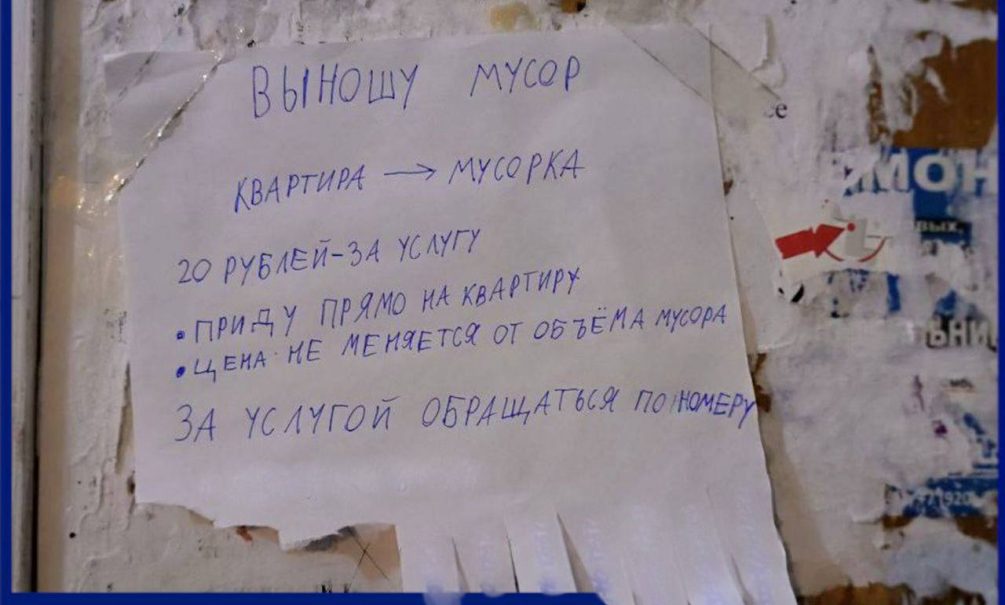 ВЫНОШУ МУСОР
КВАРТИРА → МУСОРКА
20 РУБЛЕЙ-ЗА УСЛУГУ
• ПРИДУ ПРЯМО НА КВАРТИРУ
• ЦЕНА НЕ МЕНЯЕТСЯ ОТ ОБЪЁМА МУСОРА
ЗА УСЛУГОЙ ОБРАЩАТЬСЯ ПО НОМЕРУ